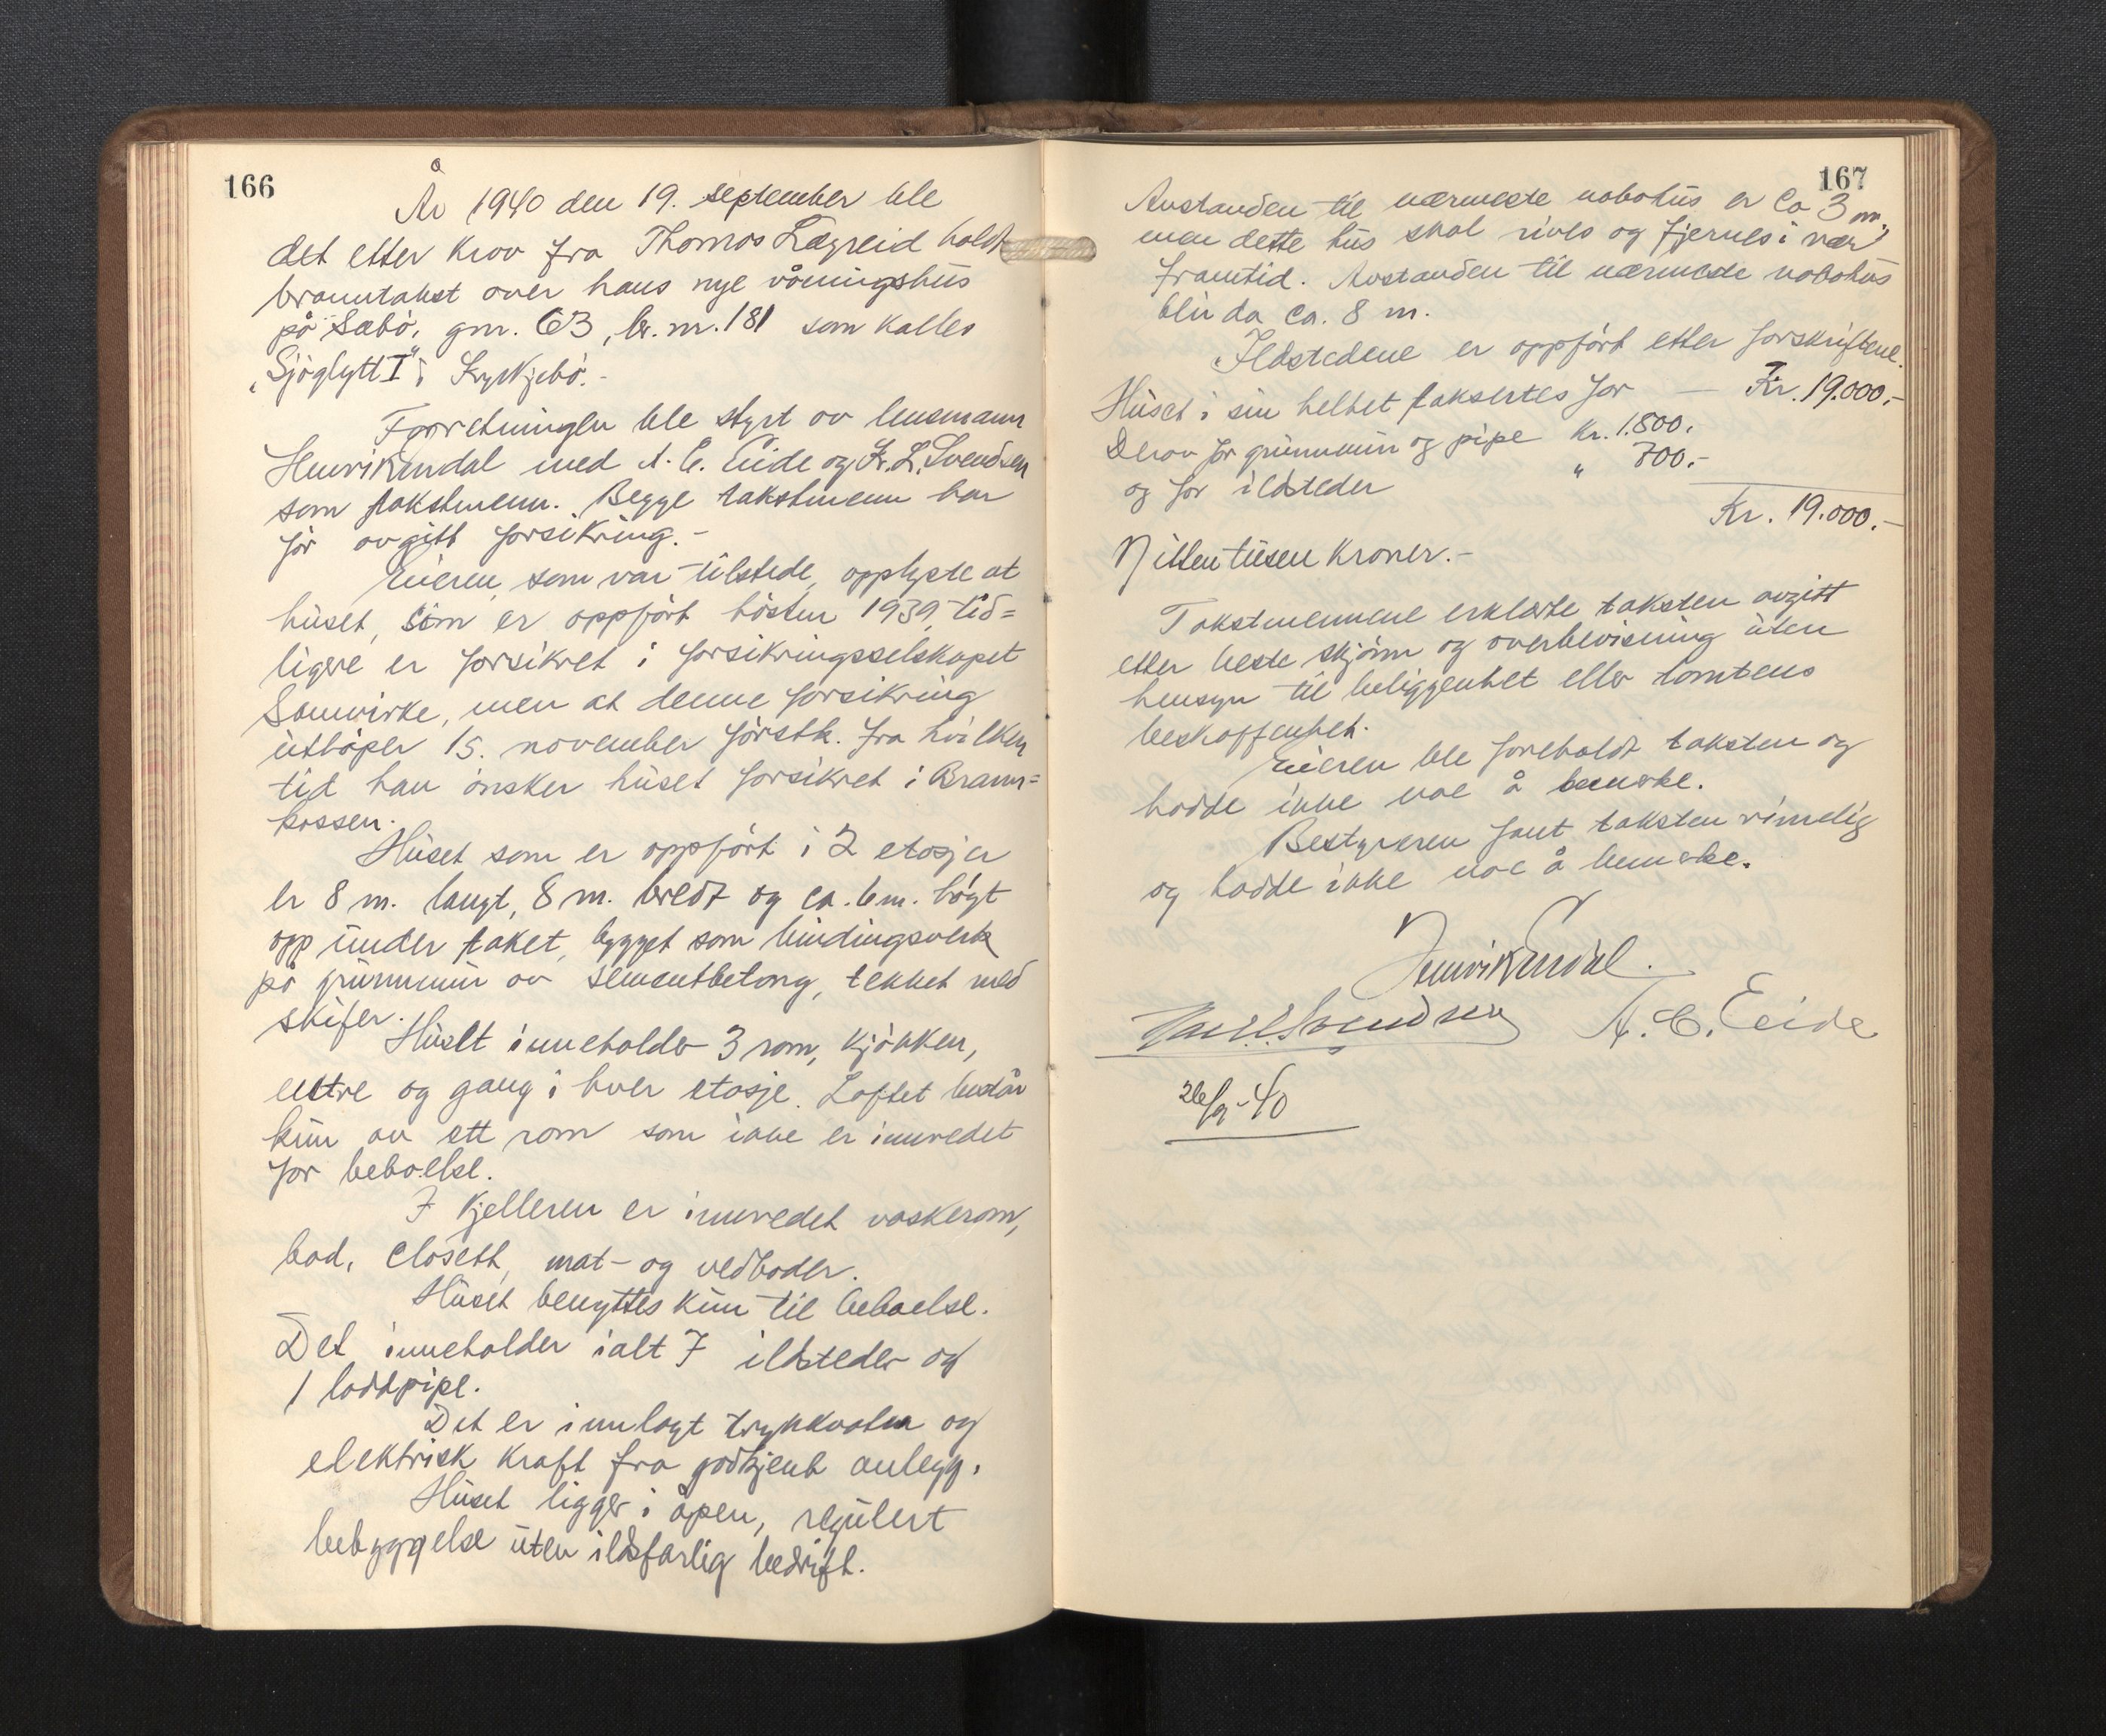 166
År 1940 den 19. september ble
det etter krav fra Thomas Lægreid holdt
branntakst over hans nye våningshus
på Sæbö, gnr. 63, br. nr. 181 som kalles
„Sjöglytt I" i Kyrkjebö.-
Forretningen ble styrt av lensmann
Henrik Endal med A. C. Eide og Kr. L. Svendsen
som takstmenn. Begge takstmenn har
för avgitt forsikring.-
Eieren, som var tilstede, opplyste at
huset, som er oppfört hösten 1939, tid=
ligere er forsikret i forsikringsselskapet
Samvirke, men at denne forsikring
utlöper 15. november förstk. fra hvilken
tid han önsker huset forsikret i Brann=
kassen.
Huset som er oppfört i 2 etasjer
er 8 m. langt, 8 m. bredt og ca. 6 m. högt
opp under taket, bygget som bindingsverk
på grunnmur av sementbetong, tekket med
skifer.
Huset inneholder 3 rom, kjökken,
entre og gang i hver etasje. Loftet består
kun av ett rom som ikke er innredet
for beboelse.
I kjelleren er innredet vaskerom,
bad, closett, mat- og vedboder.
Huset benyttes kun til beboelse.
Det inneholder ialt 7 ildsteder og
1 loddpipe.
Det er innlagt trykkvatn og
elektrisk kraft fra godkjent anlegg.
Huset ligger i åpen, regulert
bebyggelse uten ildsfarlig bedrift.
167
Avstanden til nærmeste nabohus er ca 3 m.
men dette hus skal rives og fjernes i nær
framtid. Avstanden til nærmeste nabohus
blir da ca. 8 m.
Ildstedene er oppfört etter forskriftene.
Huset i sin helhet taksertes for — Kr. 19.000.-
Derav for grunnmur og pipe Kr. 1.800.
og for ildsteder " 700.-
Kr. 19.000.-
Nitten tusen kroner.-
Takstmennene erklærte taksten avgitt
etter beste skjönn og overbevisning uten
hensyn til beliggenhet eller tomtens
beskaffenhet.
Eieren ble foreholdt taksten og
hadde ikke noe å bemerke.
Bestyreren fant taksten rimelig
og hadde ikke noe å bemerke.
Henrik Endal.
Svendsen A. C. Eide
26/9-40